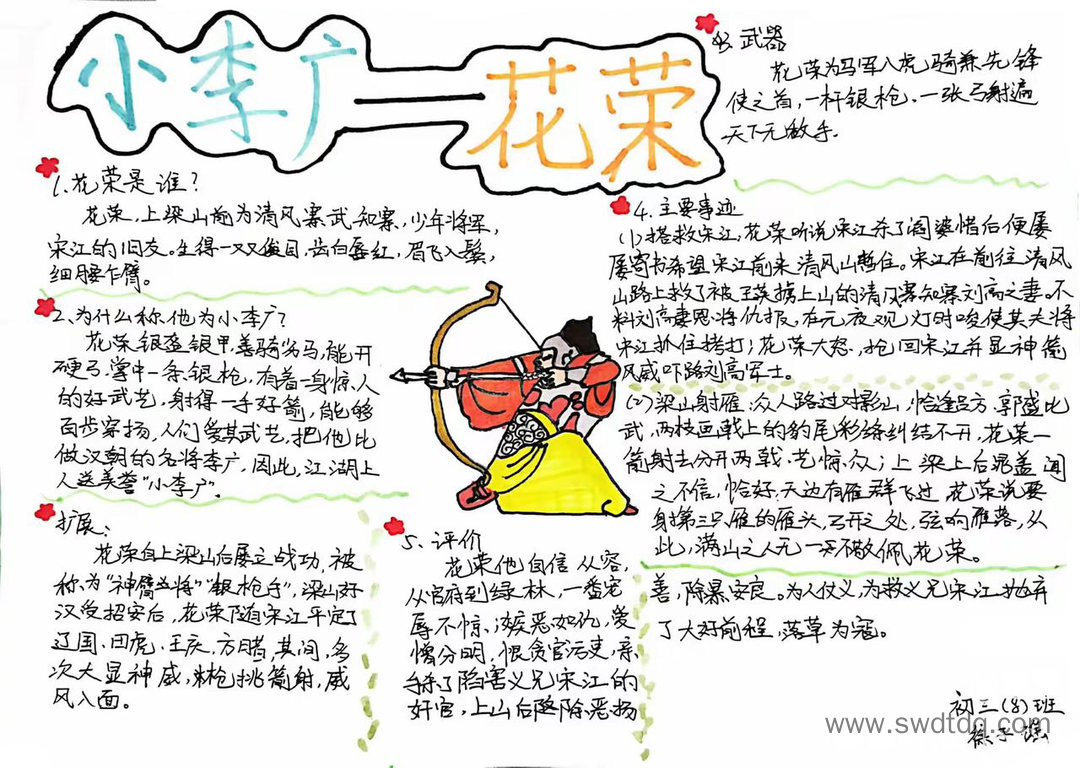 小李广——花荣
1.花荣是谁?
花荣,上梁山前为清风寨武知寨,少年将军,
宋江的旧友。生得一双俊目,齿白唇红,眉飞入鬓,
细腰乍臂。
2、为什么称他为小李广?
花荣银盔银甲,善骑劣马,能开
硬弓,掌中一条银枪,有着一身惊人
的好武艺,射得一手好箭,能够
百步穿扬,人们爱其武艺,把他比
做汉朝的名将李广,因此,江湖上
人送美誉“小李广”.
扩展:
花荣自上梁山后屡立战功,被
称为“神臂将”“银枪手”,梁山好
汉受招安后,花荣随宋江平定了
辽国、田虎、王庆、方腊,其间,多
次大显神威,枪挑箭射,威
风八面。
3.武器
花荣为马军八虎骑兼先锋
使之首,一杆银枪.一张弓射遍
天下无敌手.
4.主要事迹
(1)搭救宋江,花荣听说宋江杀了阎婆惜后便屡
屡寄书希望宋江前来清风山暂住。宋江在前往清风
山路上救了被王英掳上山的清风寨知寨刘高之妻。不
料刘高妻恩将仇报,在元夜观灯时唆使其夫将
宋江抓住拷打;花荣大怒.抢回宋江并显神箭
风威吓路刘高军士。
(2)梁山射雁:众人路过对影山,恰逢吕方.郭盛比
武,两枝画戟上的豹尾彩绦纠结不开,花荣一
箭射去分开两戟.艺惊众;上梁上后晁盖闻
之不信,恰好天边有雁群飞过.花荣说要
射第三只雁的雁头,弓开之处,弦响雁落,从
此,满山之人无一不敬佩花荣。
5、评价
花荣他自信从容,
从官府到绿林,一番宠
辱不惊,嫉恶如仇,爱
憎分明,恨贪官污吏,亲
手杀了陷害义兄宋江的
奸官,上山后除恶扬
善,除暴安良。为人仗义,为救义兄宋江抛弃
了大好前程,落草为寇。
初三(8)班
www.swdtdq.com